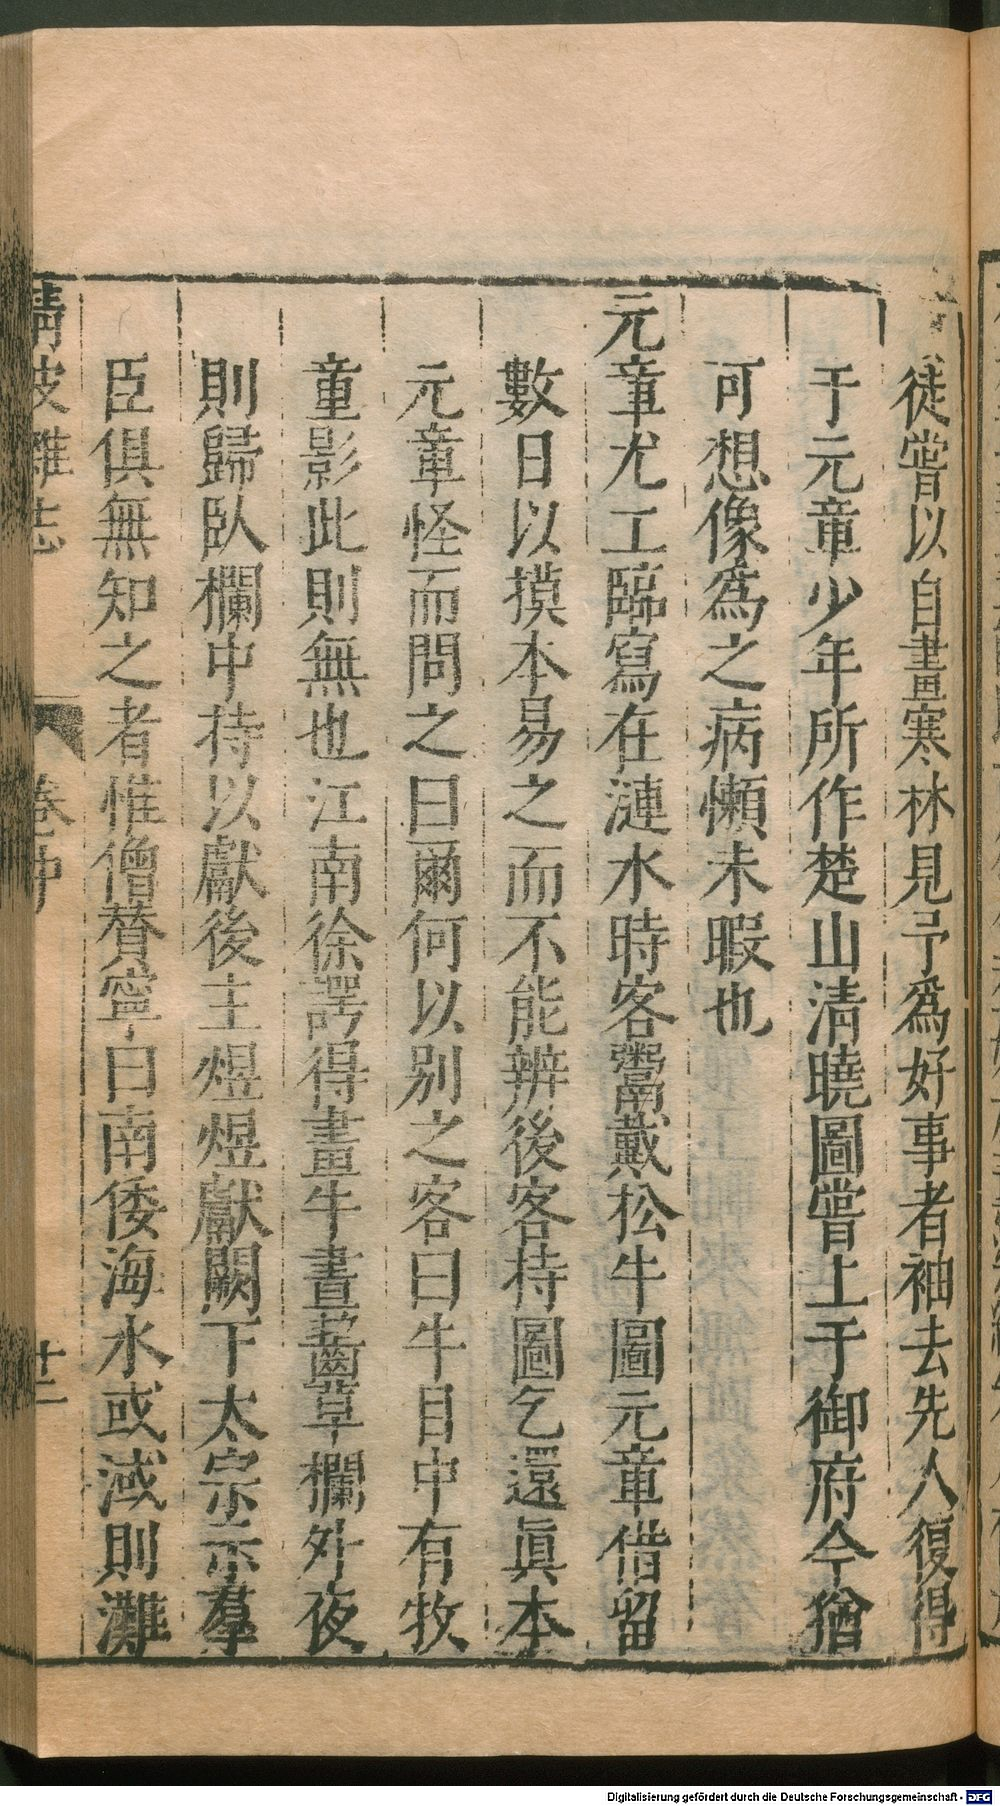 徒嘗以自畫寒林見予爲好事者袖去先人復得
于元章少年所作楚山清曉圖嘗上于御府今猶
可想像爲之病懶未暇也
元章尤工臨寫在漣水時客鬻戴松牛圖元章借留
數日以摸本易之而不能辨後客持圖乞還眞本
元章怪而問之曰爾何以別之客曰牛目中有牧
童影此則無也江南徐諤得畫牛晝齧草欄外夜
則歸臥欄中持以獻後主煜煜獻闕下太宗示羣
臣俱無知之者惟僧贊寧曰南倭海水或減則灘
清波雜志
卷中
廿二
Digitalisierung gefördert durch die Deutsche Forschungsgemeinschaft - DFG